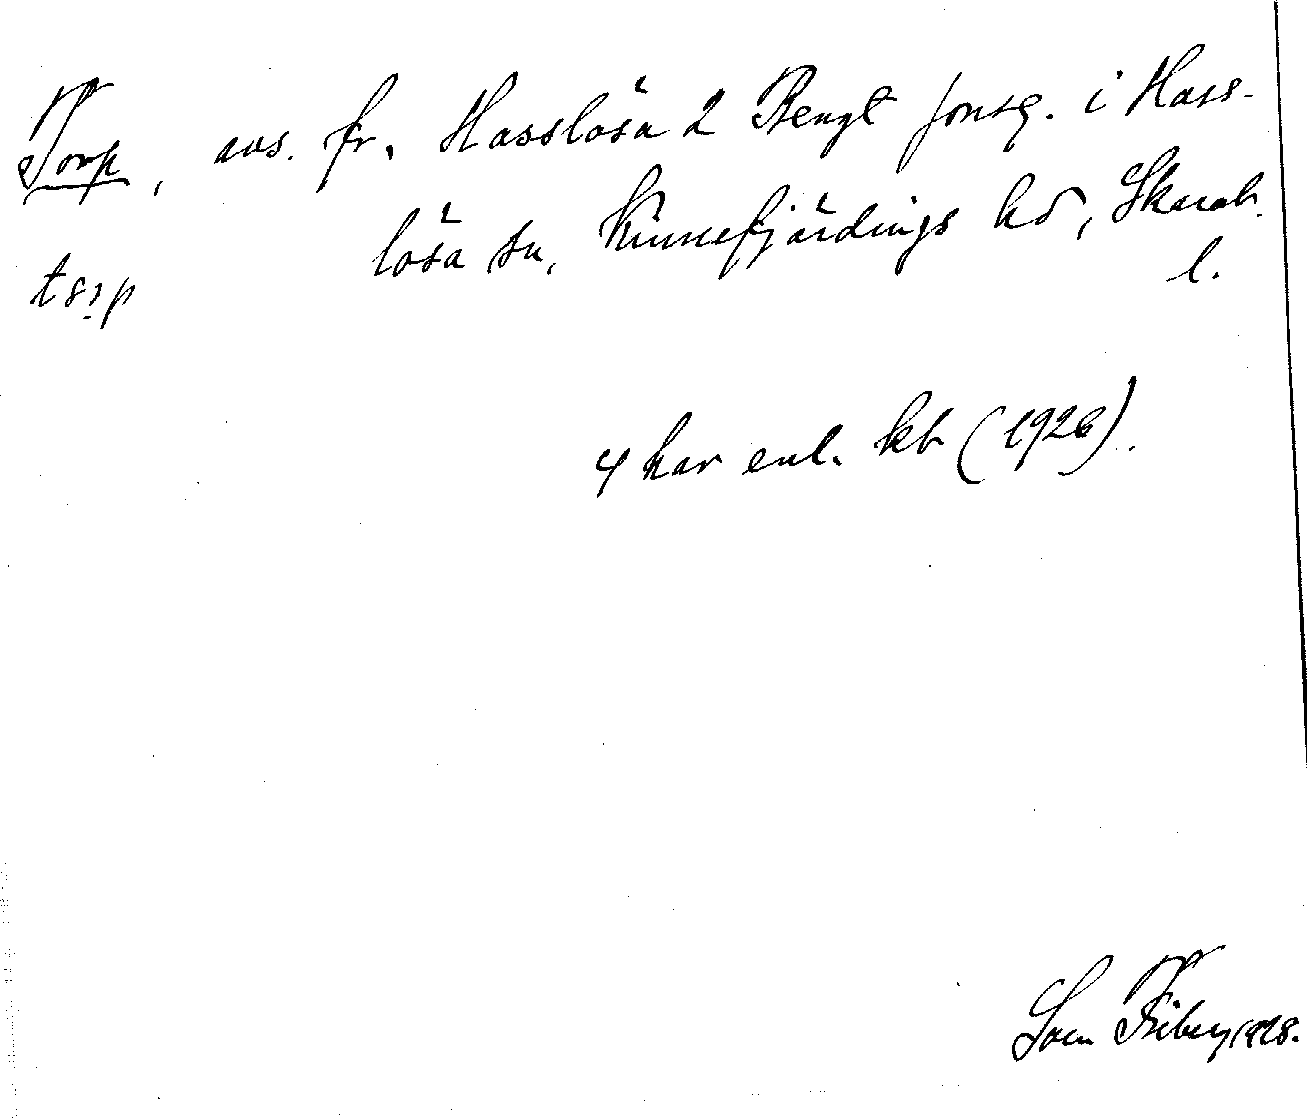 Torp, avs. fr. Hasslösa 2 Bengt Jonsg. i Hass-
lösa sn, Kinnefjärdings hd, Skarab.
l.
tsrp
4 har enl. kb (1926).
1928.